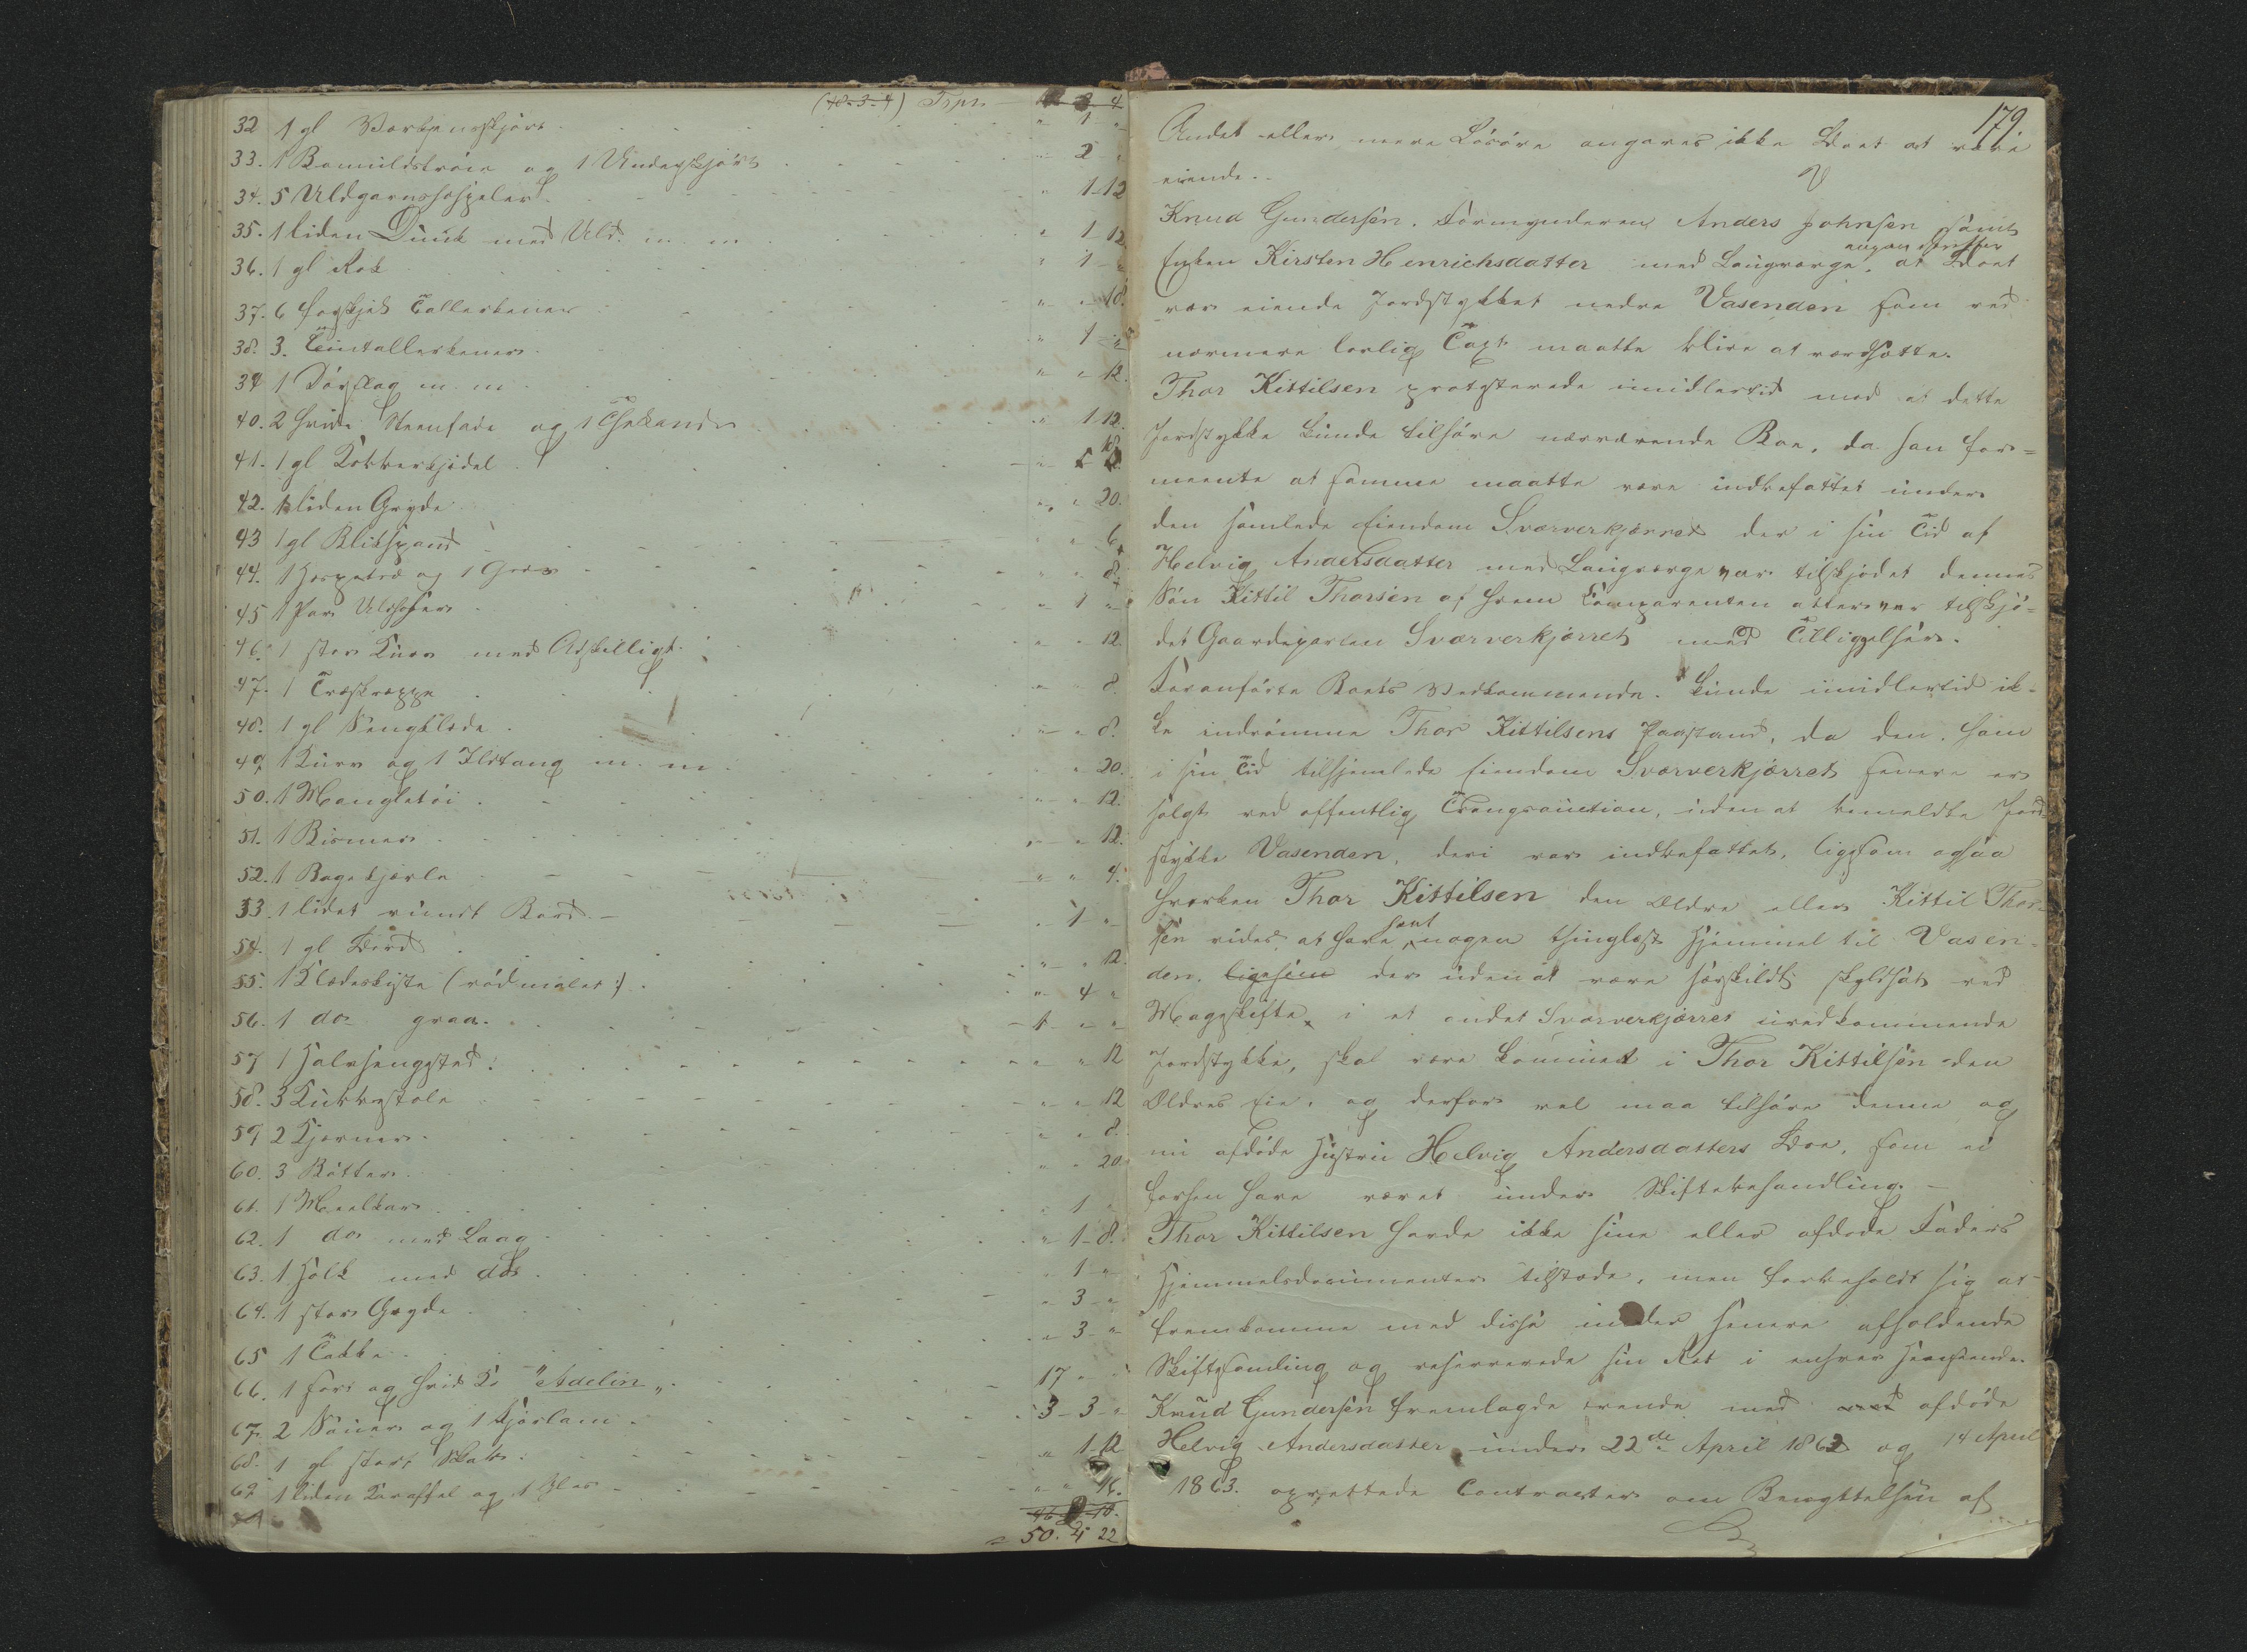 (18-3-4) Trpt
32 1 gl Værkenskjørt " 1 "
33. 1 Bomuldstrøie og 1 Underskjørt " 2 "
34. 5 Uldgarnshespeler " 1-12
35. 1 liden Dunk med Uld m. m " 1-12
36. 1 gl Rok " 1 "
37. 6 forskjel Tallerkener " " 18.
38. 3. Tintallerkener " 1 "
39 1 Dørslag m. m " " 12.
40. 2 hvide Steenfade og 1 Thekande " 1-12.
41. 1 gl Kobberkjedel
42. 1 liden Gryde " " 20.
43 1 gl Blikspand " " 6
44. 1 Haspetræ og 1 " " 8.
45 1 Par Uldhoser " 1 "
46. 1 stor Kurv med Adskilligt " " 12.
47. 1 Træskræppe " " 8.
48. 1 gl Sengklæde " " 8.
49. 1 Kurv og 1 Ildtang m. m " " 20.
50. 1 Mangletøi " " 12.
51. 1 Bismer " " 12.
52. 1 Bagekjævle " " 4.
53. 1 lidet rundt Bord " 1 "
54. 1 gl Bord " " 12.
55. 1 Klædeskiste (rødmalet) " 4 "
56. 1 do graa 1 " "
57 1 Halvsengsted " " 12
58. 3 Kubbestole " " 12
59. 2 Kjerner " " 8.
60. 3 Bøtter " " 20
61. 1 Meelkar " 1 "
62. 1 do med Laag " 1-8.
63. 1 Holk med do " 1 "
64. 1 stor Gryde " 3 "
65 1 Takke " 3 "
66. 1 sort og hvid Ko "Adelin" 17 " "
67. 2 Sauer og 1 Lam 3-3 "
68. 1 gl stort Skab " 1-12
69 1 liden Karaffel og 1 Glas " " 16.
50. 4 22
179.
Andet eller meere Løsøre angaves ikke Boet at være
eiende.
Knud Gundersen. Formynderen Anders Johnsen samt
Enken Kirsten Henrichsdatter med Laugværge, angav derefter at Boet
var eiende Jordstykket nedre Vasenden som ved
nærmere lovlig Taxt maatte blive at værdsætte.
Thor Kittilsen protesterede imidlertid mod at dette
Jordstykke kunde tilhøre nærværende Boe, da han for=
meente at samme maatte være indbefattet under
den samlede Eiendom Sværverkjærret der i sin Tid af
Helvig Andersdatter med Laugværge var tilskjødet dennes
Søn Kittil Thorsen af hvem Comparenten atter var tilskjø=
det Gaardeparten Sværverkjærret med Tilliggelser.
Foranførte Boets Vedkommende kunde imidlertid ik=
ke indrømme Thor Kittilsens Paastand, da den, som
i sin Tid tilhjemlede Eiendom Sværverkjærret senere er
solgt ved offentlig Tvangsauction, uden at bemeldte Jord=
stykke Vasenden, deri var indbefattet, ligesom ogsaa
hverken Thor Kittilsen den Ældre eller Kittil Thor=
sen vides at have havt nogen thinglæst Hjemmel til Vasen=
den, ligesom der uden at være særskildt skyldsat ved
Mageskifte i et andet Sværverkjærret uvedkommende
Jordstykke, skal være kommet i Thor Kittilsen den
Ældres Eie, og derfor vel maa tilhøre denne og
nu afdøde Hustru Helvig Andersdatters Boe, som ei
forhen have været under Skiftebehandling.
Thor Kittilsen havde ikke sine eller afdøde Faders
Hjemmelsdocumenter tilstæde, men forbeholdt sig at
fremkomme med disse under senere afholdende
Skiftesamling og reserverede sin Ret i enhver Henseende.
Knud Gundersen fremlagde tvende med afdøde
Helvig Andersdatter under 22de April 1862 og 14 April
1863. oprettede Contracter om Benyttelsen af